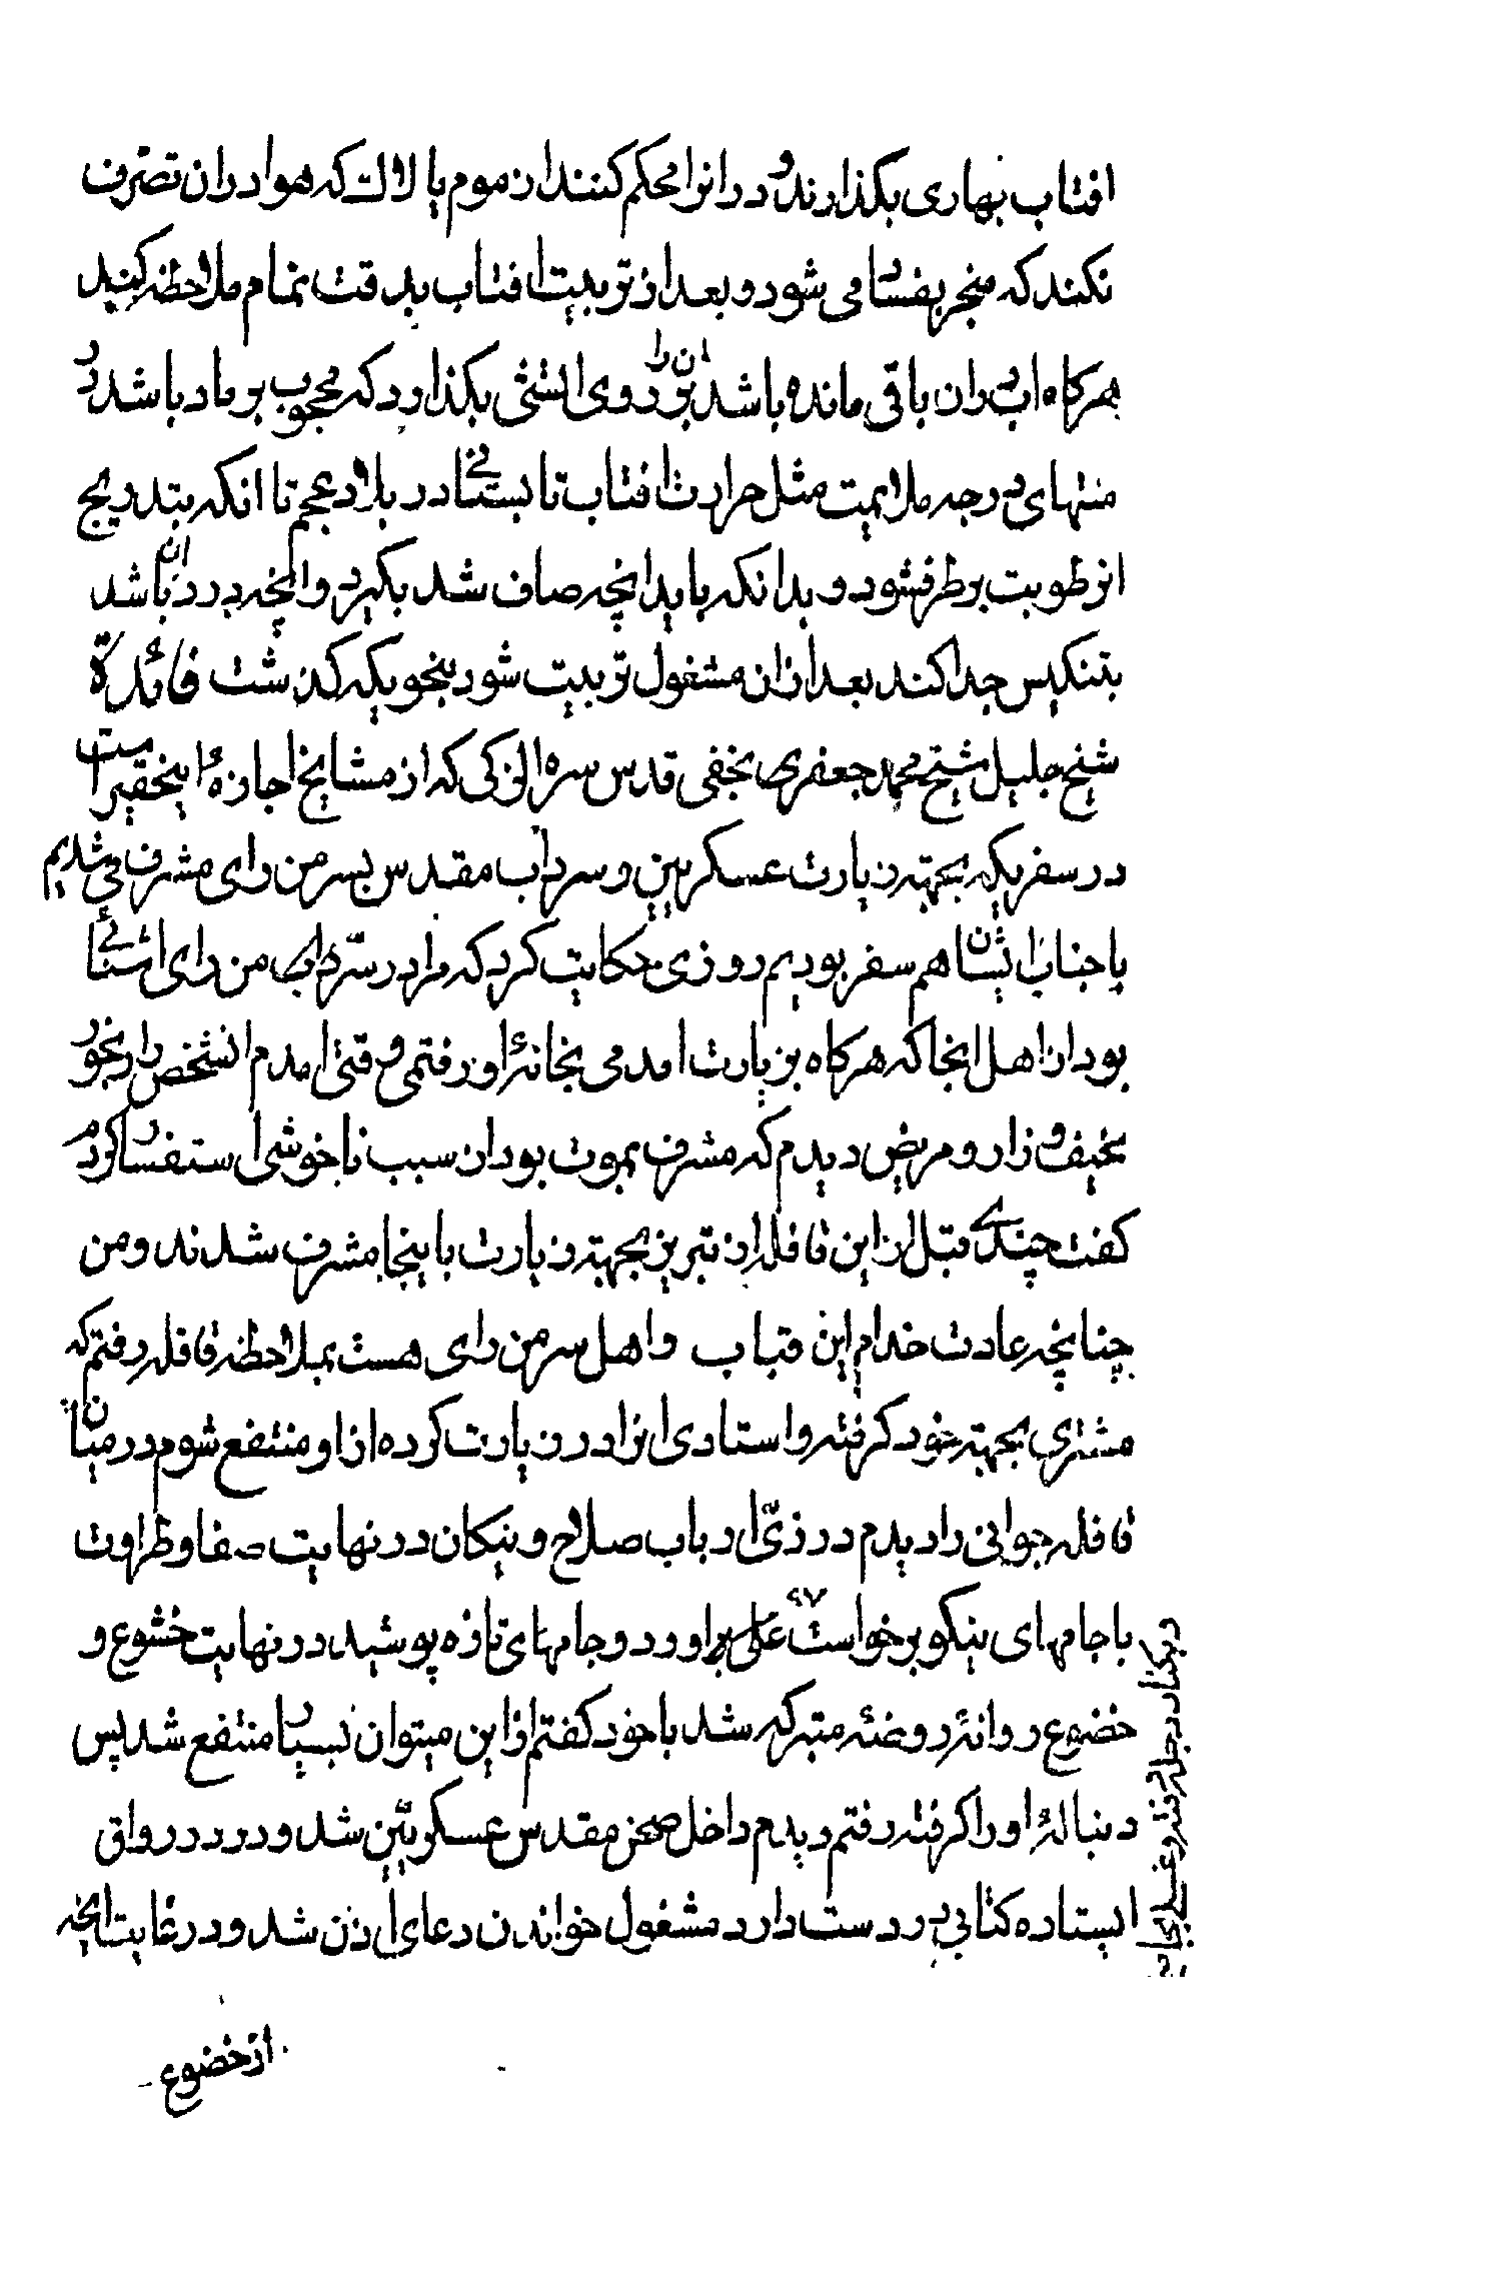 افتاب بهاری بکذارند و در انرا محکم کنند از موم یا لاک که هوا در ان تصرف
نکند که منجر بفساد می شود و بعد از تربیت افتاب بدقت تمام ملاحظه کنید
هرکاه ابی در ان باقی مانده باشد ان را بر روی اتشی بکذارد که محجوب برماد باشد در
منتهای درجه ملایمت مثل حرارت افتاب تابستانی در بلاد عجم تا انکه بتدریج
از رطوبت برطرف شود و بدانکه باید انچه صاف شد بکیرد و انچه درد ان باشد
بتنکیس جدا کند بعد از ان مشغول تربیت شود بنحویکه کذشت فائدة
شیخ جلیل شیخ محمد جعفر نجفی قدس سره الزکی که از مشایخ اجازهٔ اینحقیر است
در سفریکه بجهة زیارت عسکریین و سرداب مقدس بسر من رای مشرف می شدیم
با جناب ایشان هم سفر بودیم روزی حکایت کرد که مرا در سر من رای اشنائی
بود از اهل انجا که هرکاه بزیارت امدمی بخانهٔ او رفتمی وقتی امدم انشخص را رنجور
نحیف و زار و مریض دیدم که مشرف بموت بود ان سبب ناخوشی استفسار کردم
کفت چندی قبل از این قافله از تبریز بجهة زیارت باینجا مشرف شدند و من
چنانچه عادت خدام این قباب و اهل سر من رای هست بملاحظه قافله رفتم که
مشتری بجهة خود کرفته و استادی انرا در زیارت کرده از او منتفع شوم در میان
قافله جوانی را دیدم در زیّ ارباب صلاح و نیکان در نهایت صفا و طراوت
با جامهای نیکو برخواست غسلی براورد و جامهای تازه پوشید در نهایت خشوع و
خضوع روانهٔ روضهٔ متبرکه شد با خود کفتم از این میتوان بسیار منتفع شد پس
دنبالهٔ او را کرفته رفتم دیدم داخل صحن مقدس عسکریین شد و در در رواق
ایستاده کتابی در دست دارد مشغول خواندن دعای اذن شد و در غایت انچه
از خضوع